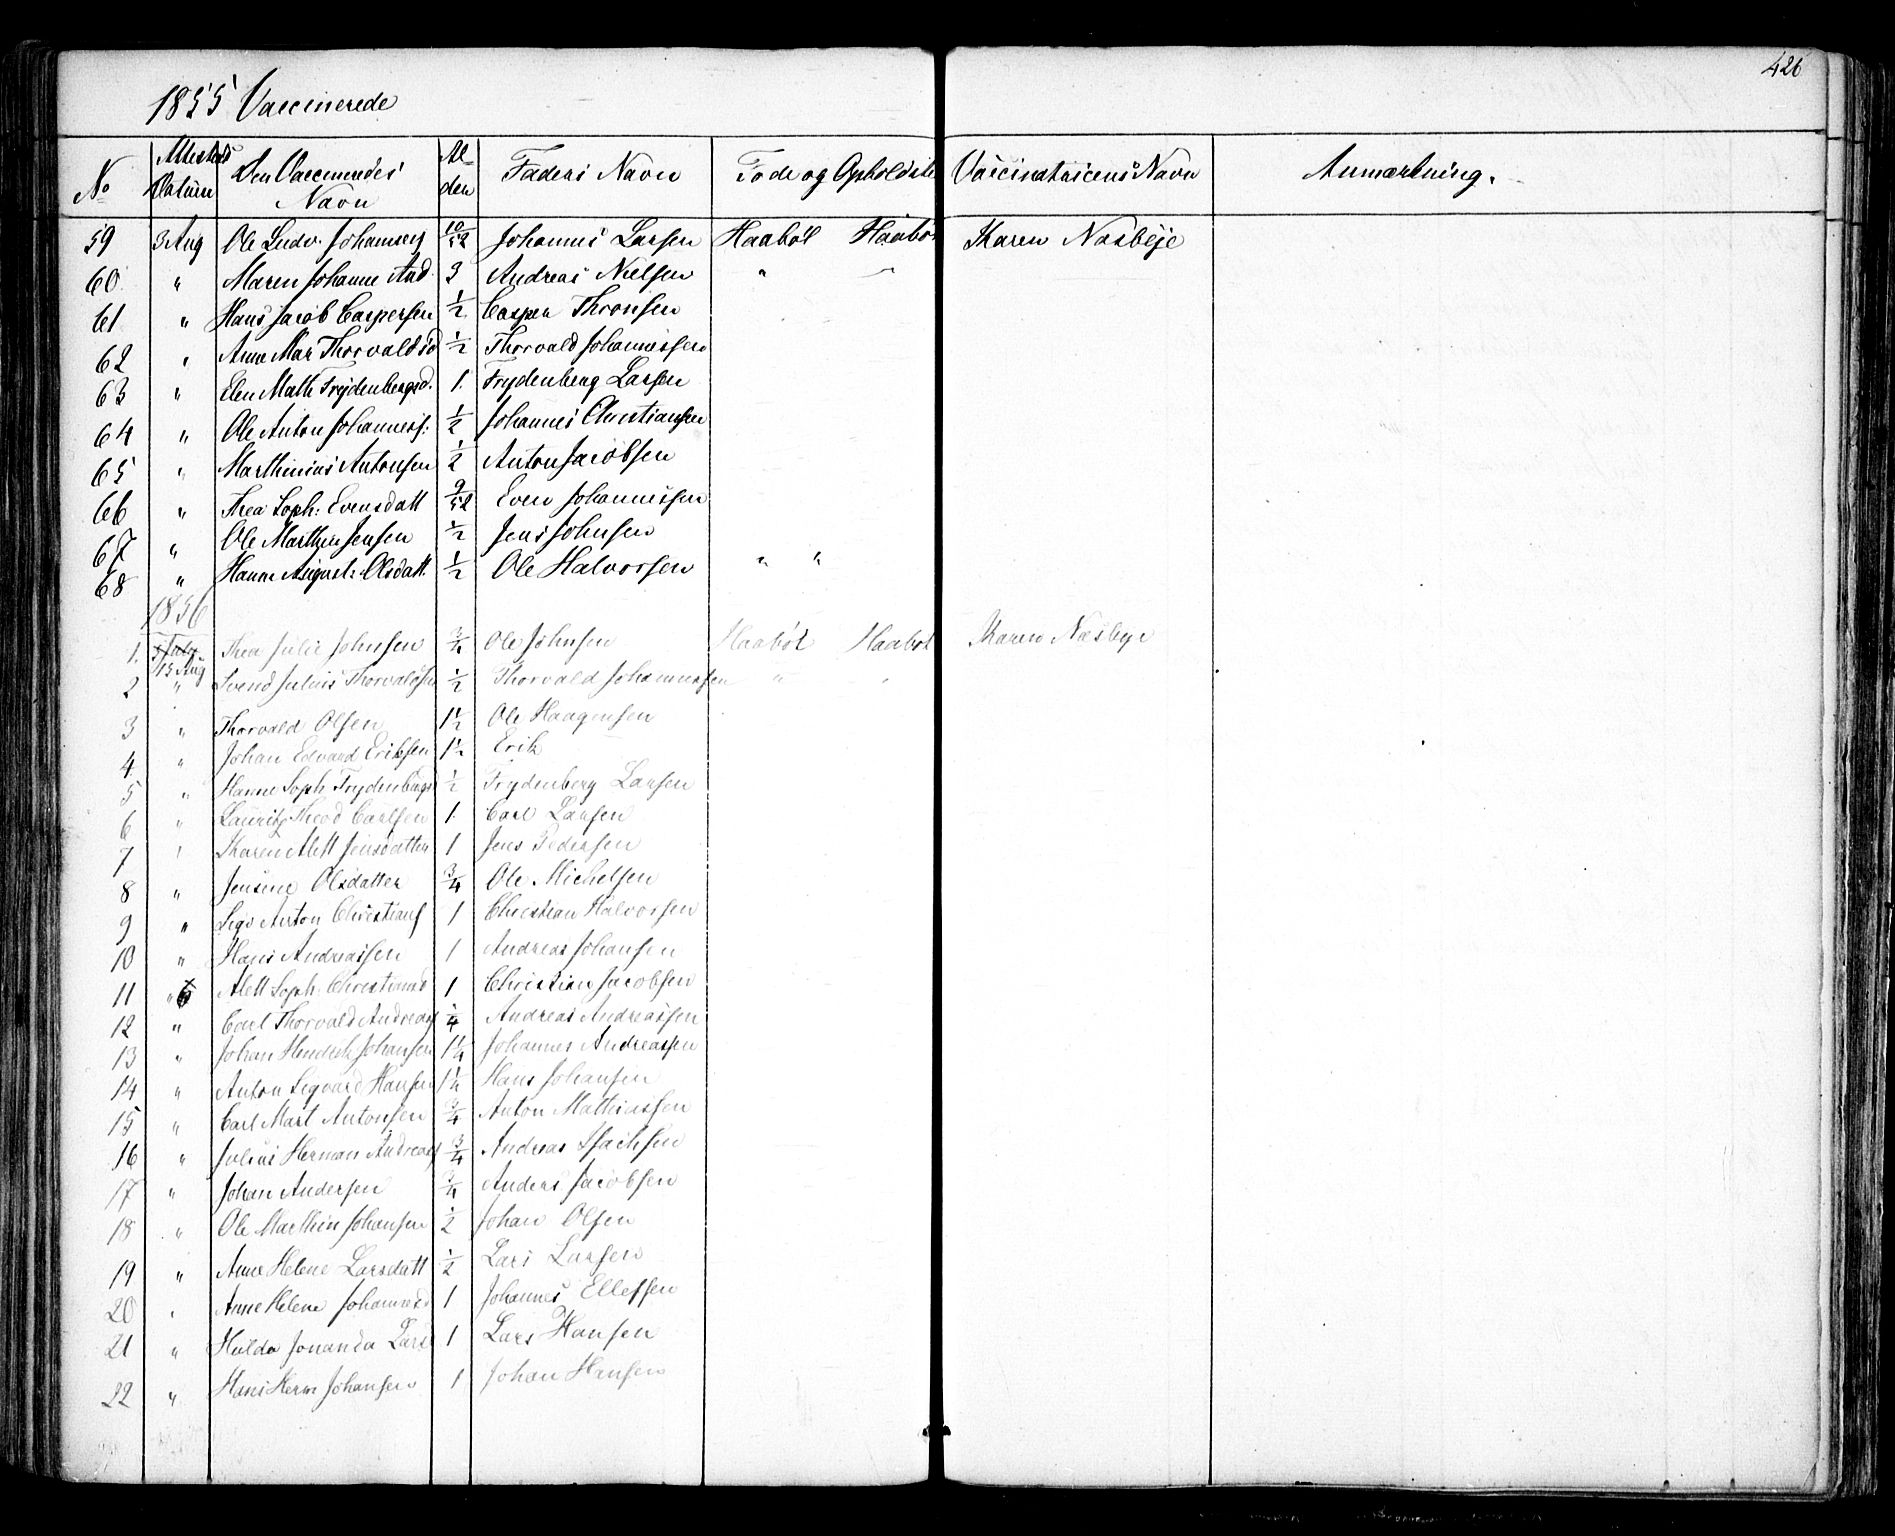 426
1855 Vaccinerede
No Attestens Datum Den Vaccineredes Navn Alden Faders Navn Føde og Opholdsste Vaccinatricens Navn Anmærkning.
59 3 Aug Ole Ludv. Johannesen 10/52 Johannes Larsen Haabøl Haabøl Karen Næsbye
60 " Maren Johanne And. 3 Andreas Nielsen " "
61 " Hans Jacob Caspersen 1/2 Casper Thronsen
62 " Anne Mar Thorvaldsd 1/2 Thorvald Johannessen
63 " Elen Math Frydenbergsd. 1. Frydenberg Larsen
64 " Ole Anton Johanness: 1/2 Johannes Christiansen
65 " Marthinius Antonsen 1/2 Anton Jacobsen
66 " Thea Soph: Evensdatt 9/52 Even Johannessen
67 " Ole Marthin Jensen 1/2 Jens Johnsen
68 " Hanne August: Olsdatt. 1/2 Ole Halvorsen " "
1856
1. 13 Aug Thea Julie Johnsen 3/4 Ole Johnsen Haabøl Haabøl Karen Næsbye
2 " Svend Julius Thorvaldsen 1/2 Thorvald Johannessen " "
3 " Thorvald Olsen 1 1/2 Ole Haagensen
4 " Johan Edvard Eriksen 1 1/2 Erik
5 " Hanne Soph Frydenbergs 1/2 Frydenberg Larsen
6 " Lauritz Theod Carlsen 1. Carl Larsen
7 " Karen Alett Jensdatter 1 Jens Pedersen
8 " Jensine Olsdatter 3/4 Ole Michelsen
9 " Anton Christians 1 Christian Halvorsen
10 " Hans Andreassen 1 Andreas Johansen
11 " Alett Soph. Christiansd 1 Christian Jacobsen
12 " Carl Thorvald Andreass 1/4 Andreas Andreassen
13 " Johan Hendrik Johansen 1 1/4 Johannes Andreassen
14 " Anton Segvard Hansen 1 1/4 Hans Johansen
15 " Carl Mart Antonsen 3/4 Anton Mathiassen
16 " Julius Herman Andreass 3/4 Andreas Isachsen
17 " Johan Andersen 3/4 Anders Jacobsen
18 " Ole Marthin Johansen 1/2 Johan Olsen
19 " Anne Helene Larsdatt 1/2 Lars Larsen
20 " Anne Helene Johannesd 1 Johannes Ellefsen
21 " Hulda Jonanda Lars 1 Lars Hansen
22 " Hans Herm Johansen 1 Johan Hansen